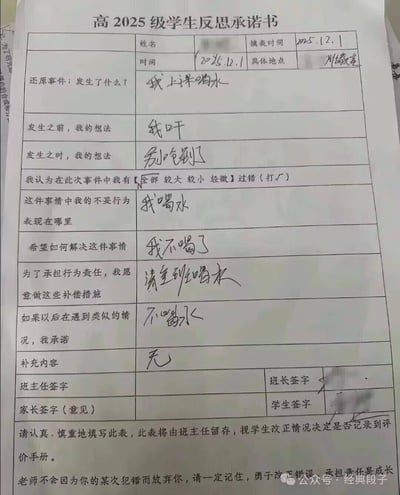 高 2025 级学生反思承诺书
姓名 填表时间 2025.12.1
时间 2025.12.1 具体地点
还原事件：发生了什么？ 我上课喝水
发生之前，我的想法 我口干
发生之时，我的想法 别呛到了
我认为在此次事件中我有【全部 较大 较小 轻微】过错（打√）
这件事情中我的不妥行为表现在哪里 我喝水
希望如何解决这件事情 我不喝了
为了承担行为责任，我愿意做这些补偿措施 喝水
如果以后在遇到类似的情况，我承诺 不喝水
补充内容 无
班主任签字 班长签字
家长签字（意见） 学生签字
请认真、慎重地填写此表，此表将由班主任留存，视学生改正情况决定是否记录到评
价手册。
老师不会因为你的某次犯错而放弃你，请一定记住，勇于改正错误、承担责任是成长
公众号·经典段子